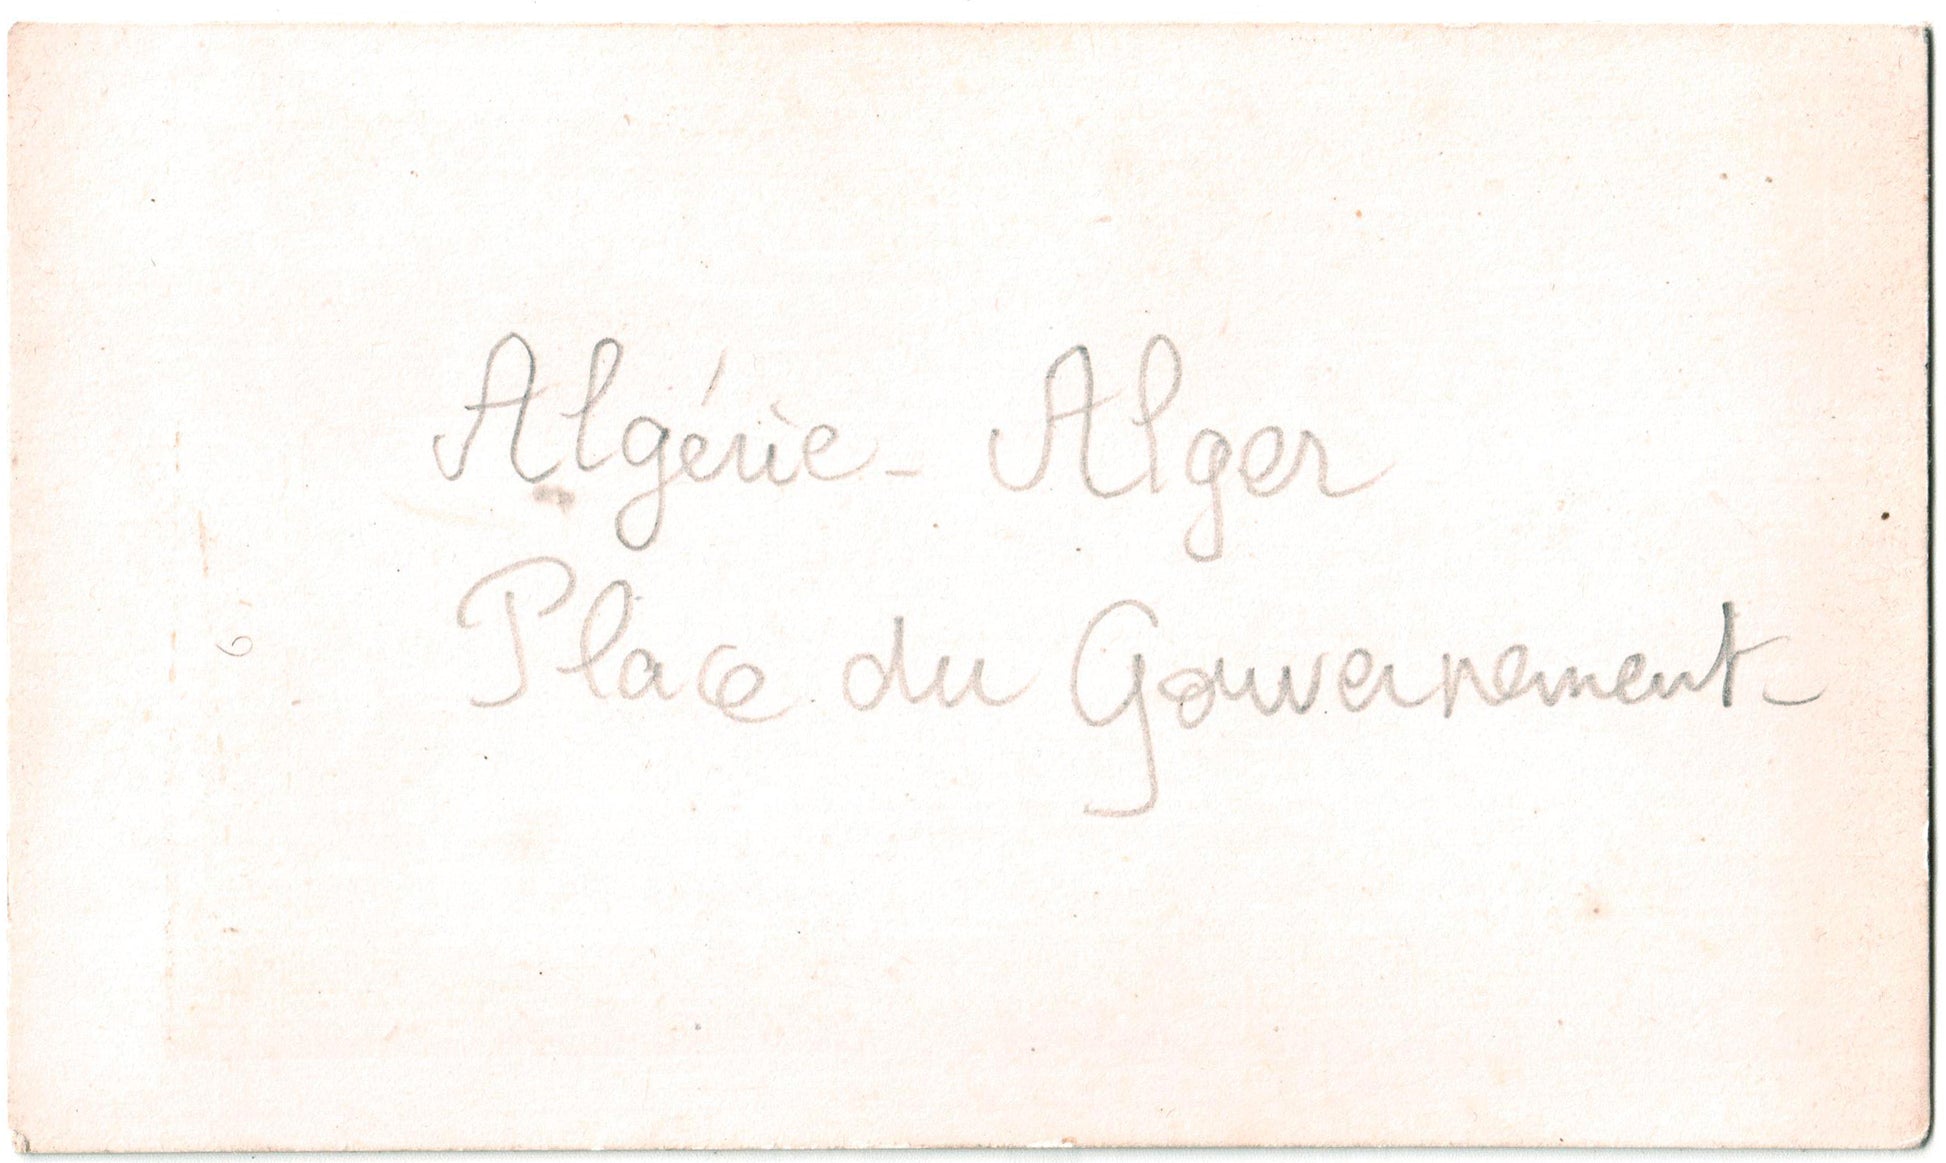 Algérie - Alger
Place du Gouvernement -